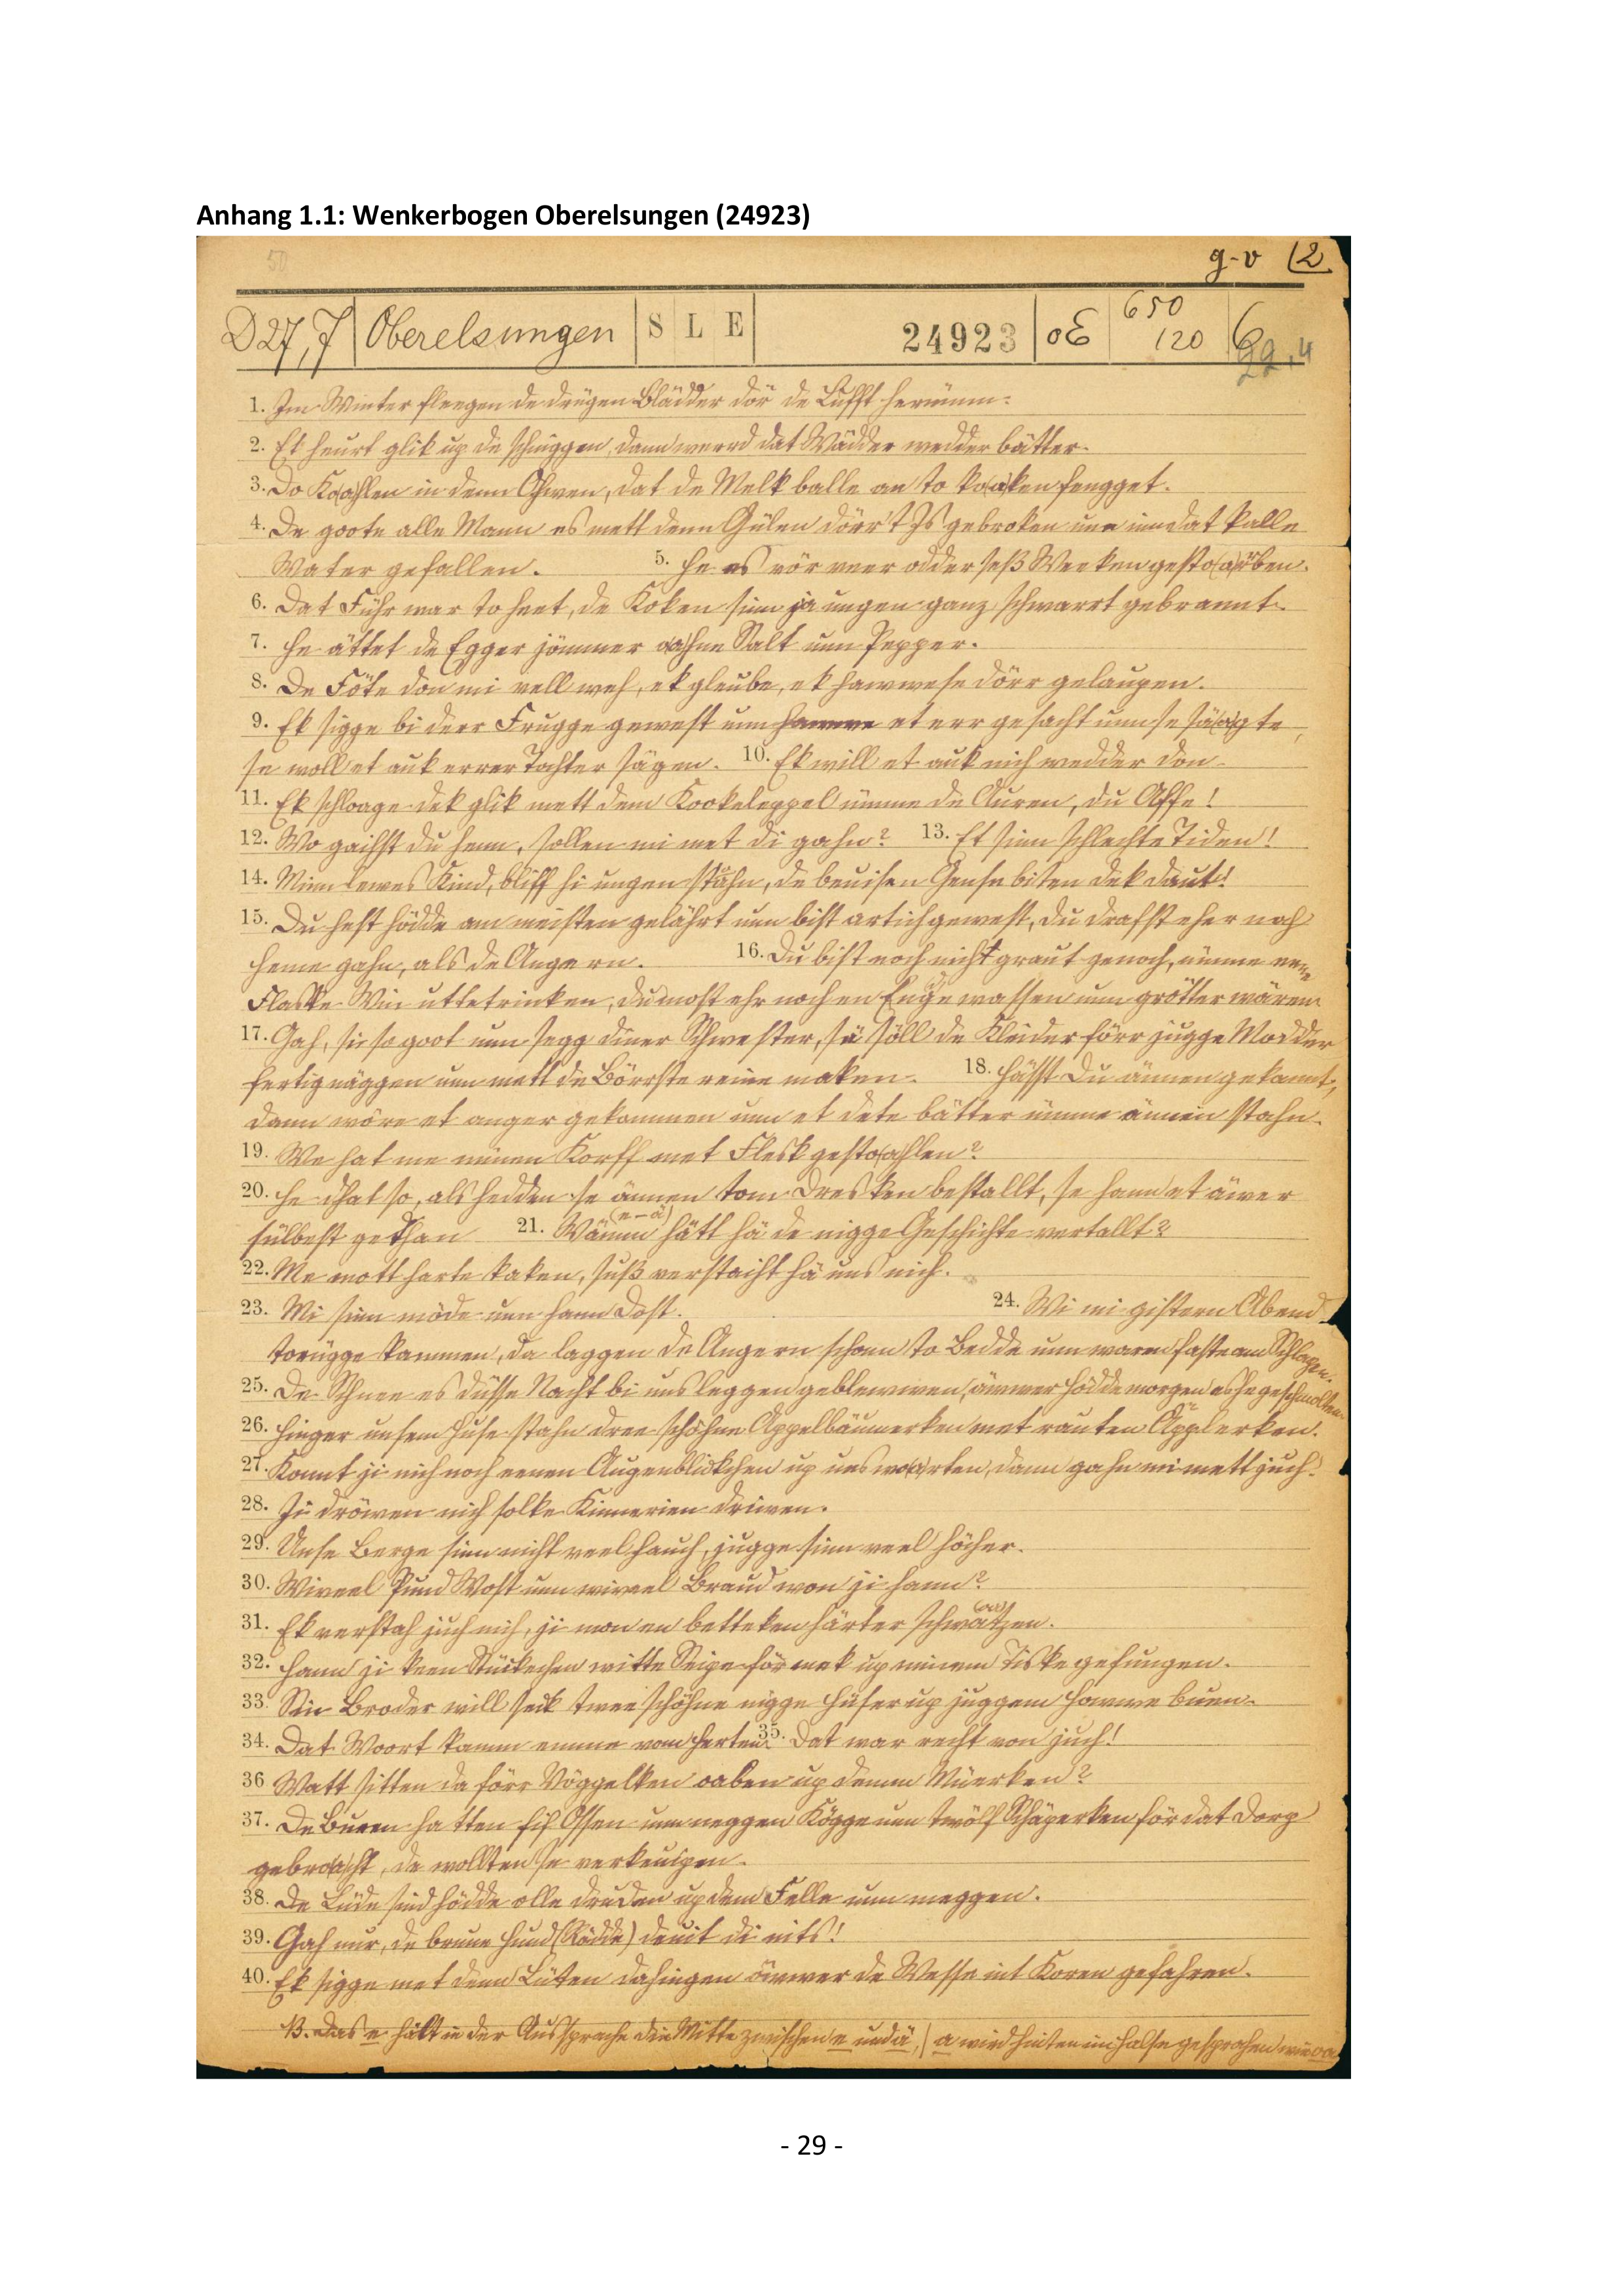 Anhang 1.1: Wenkerbogen Oberelsungen (24923)
50
g-v (2.
D27,7 Oberelsungen S L E 24923 oE 650 120
1. Im Winter fleegen de drügen Blädder dör de Lufft herümm.
2. Et heurt glik up de schniggen, dann werrd dat Wädder wedder bätter.
3. Do Ko(a)hlen in denn Ohwen, dat de Melk balle an to ko(a)ken fengget.
4. De goote alle Mann es mett denn Gülen dörr't Is gebroken unn inn dat kalle
Water gefallen. 5. He es vör veer odder seß Weeken gesto(a)rben.
6. Dat Führ war to heet, de Koken sinn ja ungen ganz schwarrt gebrannt.
7. He ättet de Egger jömmer o(a)hne Salt unn Pepper.
8. De Föte don mi vell weh, ek gleube, ek hawwe se dörr gelaupen.
9. Ek sigge bi derr Frugge gewest unn hawwe et err gesacht unn se sä(a)gte,
se woll et auk errer Tochter sägen. 10. Ek will et auk nich wedder don.
11. Ek schloage dek glik mett dem Kookeleppel ümme de Auren, du Affe!
12. Wo gaihst du henn, sollen mi met di gahn? 13. Et sinn schlechte Tiden!
14. Minn lewes Kind, bliff hi ungen stahn, de beuisen Gense biten dek daut!
15. Du hest hödde am meisten gelährt unn bist artich gewest, du drafst eher noh
heme gahn, als de Angern. 16. Du bist noch nicht graut genoch, ümme ene
Flaske Win uttetrinken, du most ehr noch en Enge wassen unn grötter wären.
17. Gah, sie so goot unn segg diner Schwester, sä söll de Kleider förr jugge Modder
fertig näggen unn mett de Börrste reine maken. 18. Hässt Du ännen gekannt,
dann wöre et anger gekommen unn et dete bätter ümme ännen stahn.
19. We hat me minen Korff met Flesk gesto(a)hlen?
20. He dhat so, als hedden se ännen tom Dresken bestallt, se hann et äwer
sülbest gethan 21. Wämm (e-ä) hätt hä de nigge Geschichte vertallt?
22. Me mott harte kaken, süß verstaiht hä uns nich.
23. Mi sinn möde unn hann Dost. 24. Wi mi gistern Abend
torügge kammen, da laggen de Angern schonn to Bedde unn waren faste am Schlapen.
25. De Schnee es düsse Nacht bi uns leggen geblewwen, äwwer hödde morgen es he geschmolten.
26. Hinger unsem Huse stahn dree schöhne Appelbäumerken met rauten Äpplerken.
27. Konnt ji nich noch eenen Augenblickchen up uns wo(a)rten, dann gahn mi mett juch.
28. Ji dröwen nich solke Kinnerien driwen.
29. Unse Berge sinn nicht veel hauch, jugge sinn veel höcher.
30. Wiveel Pund Wost unn wiveel Braud won ji hann?
31. Ek verstah juch nich, ji mon en betteken härter schwatzen. (oa)
32. Hann ji keen Stückechen witte Seipe för mek up minem Diske gefungen.
33. Sin Broder will seck twee schöhne nigge Hüser up juggem Howwe buen.
34. Dat Woort kamm emme vom Herten. 35. Dat war recht von juch!
36 Watt sitten da förr Vöggelken oaben up denen Müerken?
37. De Buren hatten fif Ossen unn neggen Kögge unn twölf Schäperken för dat Dorp
gebro(a)cht, de wollten se verkeuipen.
38. De Lüde sind hödde olle druden up dem Felle unn meggen.
39. Gah nur, de brune Hund (Rödde) deuit di nits!
40. Ek sigge met denn Lüten dahingen öwwer de Wesse int Koren gefahren.
B. Das e hält in der Aussprache die Mitte zwischen e und ä, / a wird hinten im Halse gesprochen wie oa
- 29 -